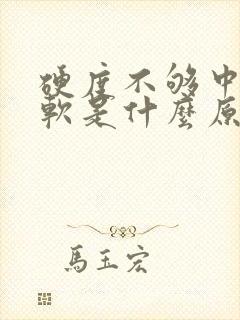 硬度不够中
軟是什麼原
馬玉宏